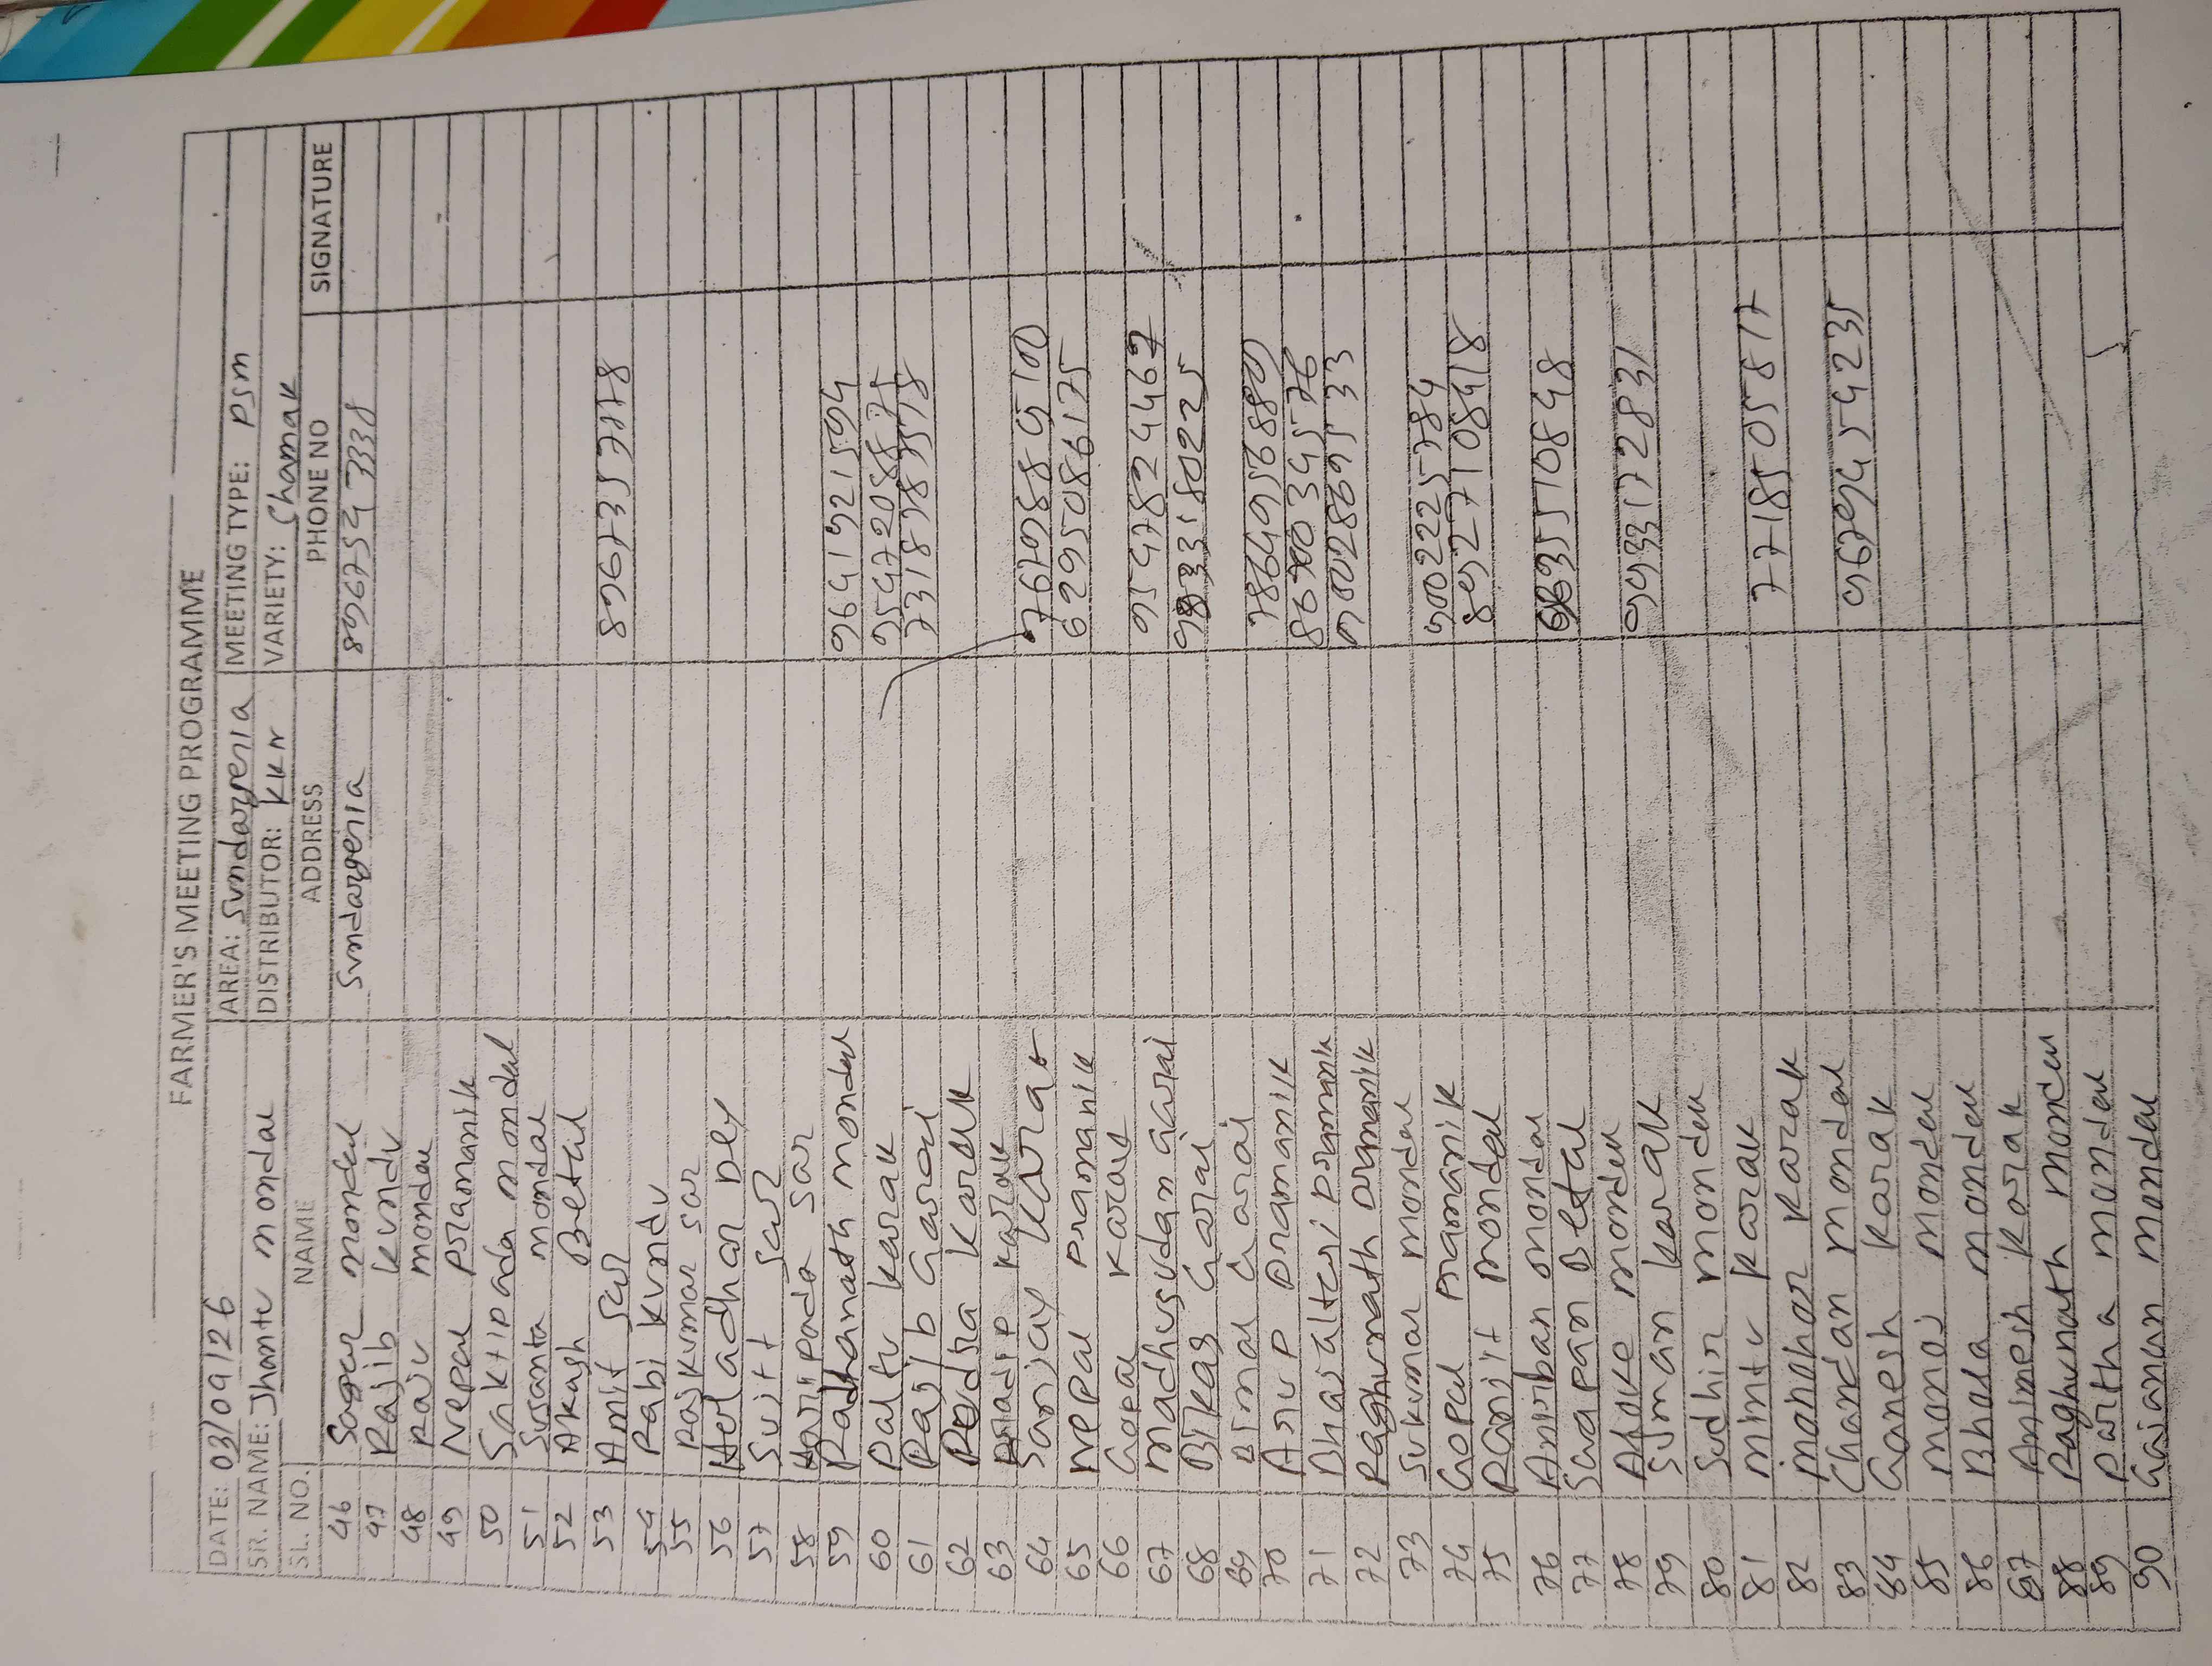 FARMER'S MEETING PROGRAMME
DATE: 03/09/26 AREA: Sundargeria MEETING TYPE: PSM
SR. NAME: Jhantu mondal DISTRIBUTOR: KKN VARIETY: Chamak
SL. NO. NAME ADDRESS PHONE NO SIGNATURE
46 Sagar mondal Sundargeria 8967543338
47 Rajib kundu
48 Raju mondal
49 Nepal Pramanik
50 Saktipada mondal
51 Susanta mondal
52 Akash Betal
53 Amit Sar 8967357778
54 Rabi Kundu
55 Rajkumar Sar
56 Haladhar Dey
57 Sujit Sar
58 Haripada Sar
59 Radhanath mondal 9641921594
60 Paltu Karak
61 Rajib Garai 7318783578
62 Rudra Karak
63 Pradip Karak
64 Sanjay Karak
65 Nepal Pramanik 6295086175
66 Gopal Karak
67 Madhusudan Garai 9547824467
68 Bikas Garai
69 Bimal Garai
70 Arup Pramanik
71 Dhar Pramanik
72 Raghunath Pramanik 9002869533
73 Sukumar mondal
74 Gopal Pramanik 9002225784
75 Ranjit mondal 8927108418
76 Anirban mondal
77 Swapan Betal
78 Aloke mondal
79 Suman Karak 9933172831
80 Sudhir mondal
81 Mintu Karak
82 Manohar Karak 7718505817
83 Chandan Mondal
84 Ganesh Karak 9679454235
85 Manoj Mondal
86 Bhola Mondal
87 Animesh Karak
88 Raghunath Mondal
89 Partha Mondal
90 Gajanan Mondal